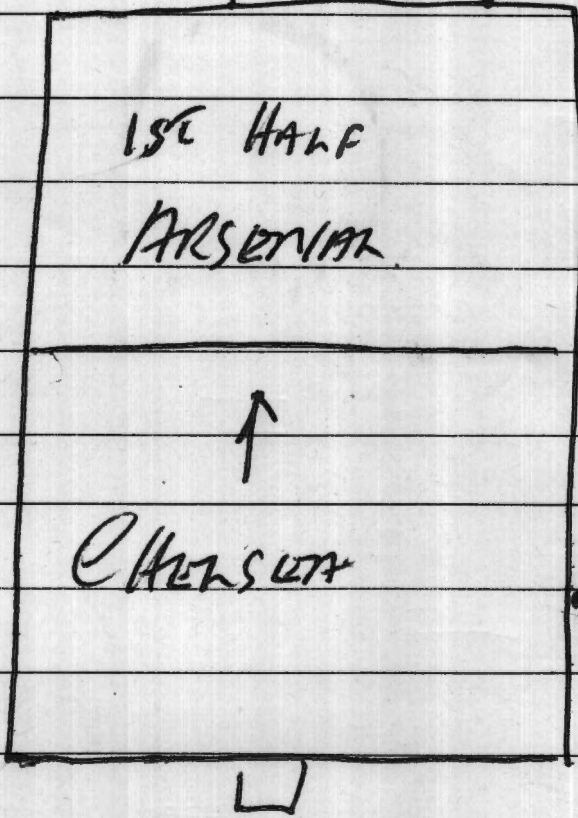 1st HALF
ARSENAL
CHELSEA